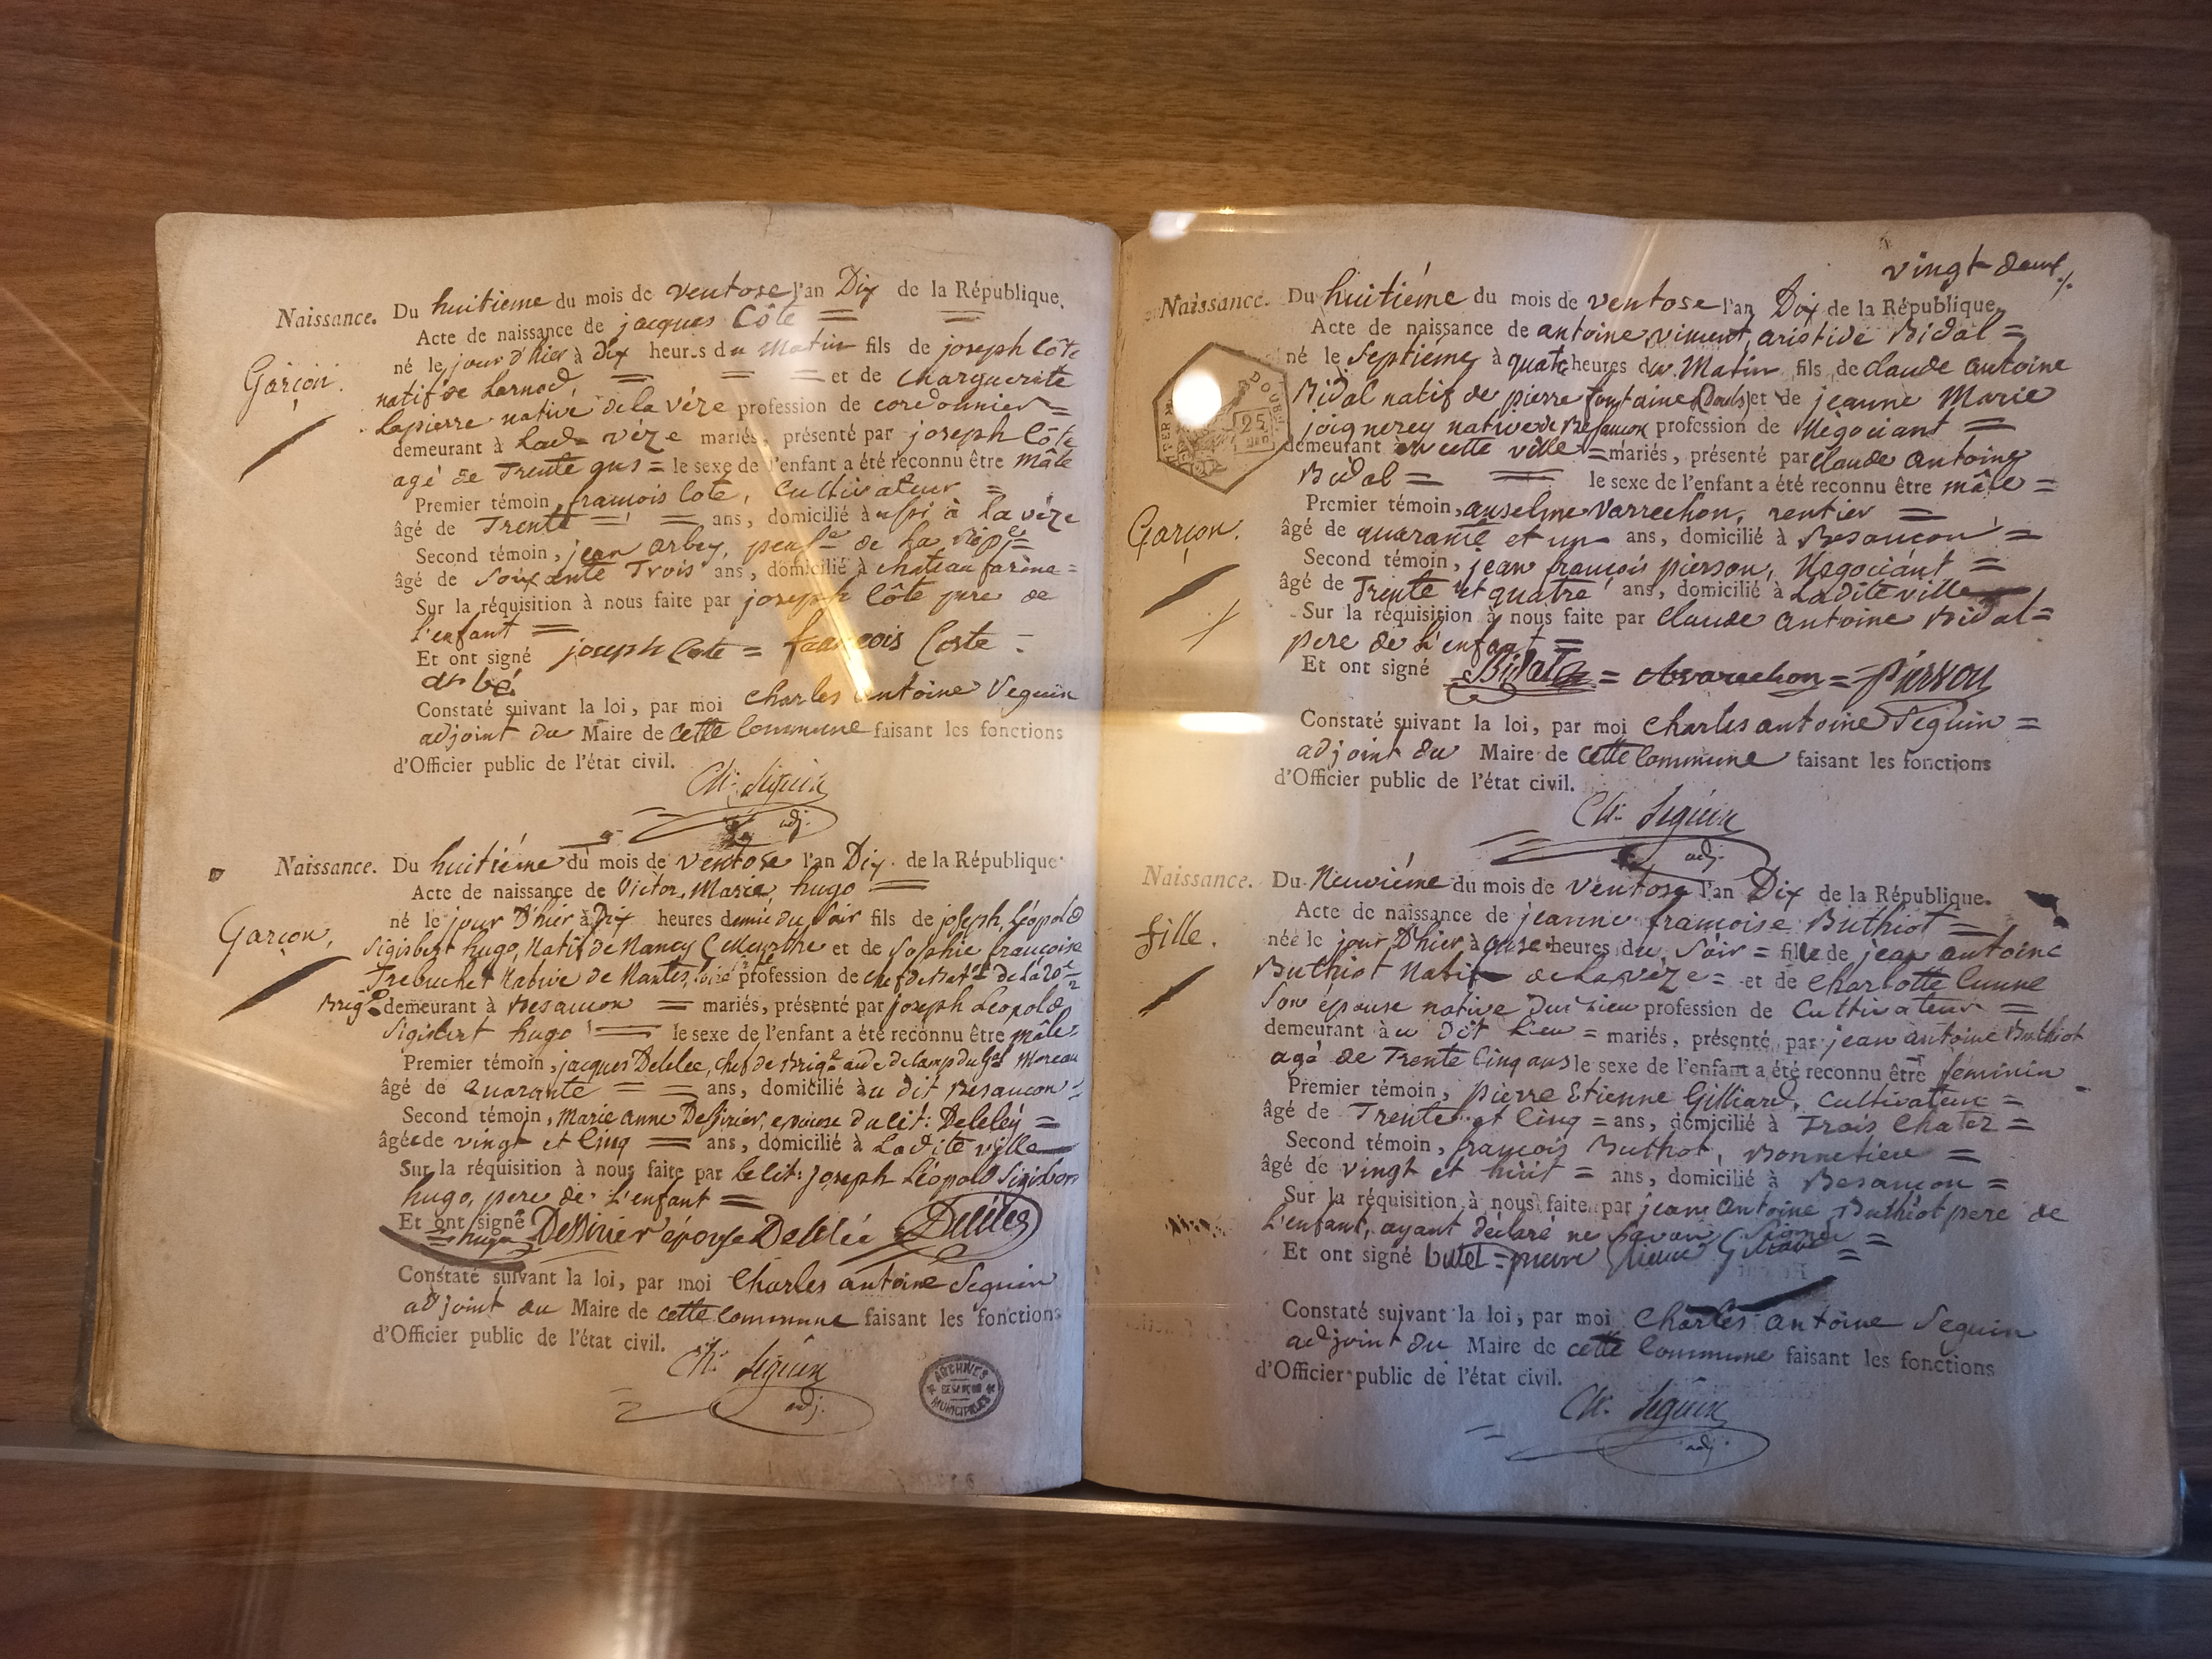 Naissance. Du huitieme du mois de ventose l'an Dix de la République.
Acte de naissance de jacques Côte =
Garçon. né le jour d'hier à dix heures du Matin fils de joseph Côte
natif de Larnod, = = = et de Marguerite
Lapierre native de la vèze profession de cordonnier =
demeurant à Lad. vèze mariés, présenté par joseph Côte
agé de Trente ans = le sexe de l'enfant a été reconnu être mâle
Premier témoin, françois Cote, Cultivateur =
âgé de Trente = = ans, domicilié à aussi à la vèze
Second témoin, jean arbey, de la
âgé de Soixante Trois ans, domicilié à chateau farine =
Sur la réquisition à nous faite par joseph Côte pere de
l'enfant =
Et ont signé joseph Cote = françois Coste =
arbé
Constaté suivant la loi, par moi Charles antoine Seguin
adjoint du Maire de cette Commune faisant les fonctions
d'Officier public de l'état civil.
Ch. Séguin
adj.
Naissance. Du huitiéme du mois de ventose l'an Dix de la République
Acte de naissance de Victor, Marie, hugo =
Garçon. né le jour D'hier à Dix heures demie du Soir fils de joseph, Léopold
Sigisbert hugo, Natif de Nancy (Meurthe et de Sophie françoise
Trebuchet Native de Nantes, profession de chef de Bat. de la 20e
Brig. demeurant à Besancon = mariés, présenté par joseph Léopold
Sigisbert hugo = le sexe de l'enfant a été reconnu être mâle
Premier témoin, jacques Delelee, Chef de Brig. aide de camp du Gal Moreau
âgé de quarante = = ans, domicilié au dit Besancon =
Second témoin, Marie anne Dessirier, epouse du cit: Deleley =
âgée de vingt et Cinq = ans, domicilié à Ladite ville
Sur la réquisition à nous faite par le Cit: joseph Léopold Sigisbert
hugo, pere de L'enfant =
Et ont signé Dessirier épouse Delelée Delelée
= hugo
Constaté suivant la loi, par moi Charles antoine Seguin
adjoint du Maire de cette Commune faisant les fonctions
d'Officier public de l'état civil.
Ch. Séguin
adj.
ARCHIVES BESANÇON MUNICIPALES
vingt deux
Naissance. Du huitiéme du mois de ventose l'an Dix de la République.
Acte de naissance de antoine, vincent, aristide Bidal =
né le Septiéme à quatre heures du Matin fils de Claude antoine
DOUBS
25
Bidal natif de pierre fontaine (Doubs) et de jeanne Marie
joignerey native de Besancon profession de Négociant =
demeurant en cette ville = mariés, présenté par Claude antoine
Bidal = = le sexe de l'enfant a été reconnu être mâle =
Premier témoin, anselme Varrechon, rentier =
Garçon. âgé de quarante et un ans, domicilié à Besancon =
Second témoin, jean françois pierson, Négociant =
âgé de Trente et quatre ans, domicilié à Ladite ville
Sur la réquisition à nous faite par Claude antoine Bidal =
pere de L'enfant =
Et ont signé Bidal = = pierson
Constaté suivant la loi, par moi Charles antoine Seguin =
adjoint du Maire de cette Commune faisant les fonctions
d'Officier public de l'état civil.
Ch. Séguin
adj.
Naissance. Du Neuviéme du mois de Ventose l'an Dix de la République.
Acte de naissance de jeanne françoise Buthiot =
fille. née le jour D'hier à onse heures du Soir = fille de jean antoine
Buthiot Natif de La vèze = et de Charlotte Cunne
Son épouse native dud Lieu profession de Cultivateur =
demeurant au Dit Lieu = mariés, présenté par jean antoine Buthiot
agé de Trente Cinq ans le sexe de l'enfant a été reconnu être féminin
Premier témoin, pierre Etienne Gilliard, Cultivateur =
âgé de Trente et Cinq = ans, domicilié à Trois Chatez =
Second témoin, françois Buthot, Bonnetier =
âgé de vingt et huit = ans, domicilié à Besancon =
Sur la réquisition à nous faite par jean antoine Buthiot pere de
L'enfant, ayant déclaré ne Savoir Signer =
Et ont signé =
Constaté suivant la loi, par moi Charles antoine Seguin
adjoint du Maire de cette Commune faisant les fonctions
d'Officier public de l'état civil.
Ch. Séguin
adj.